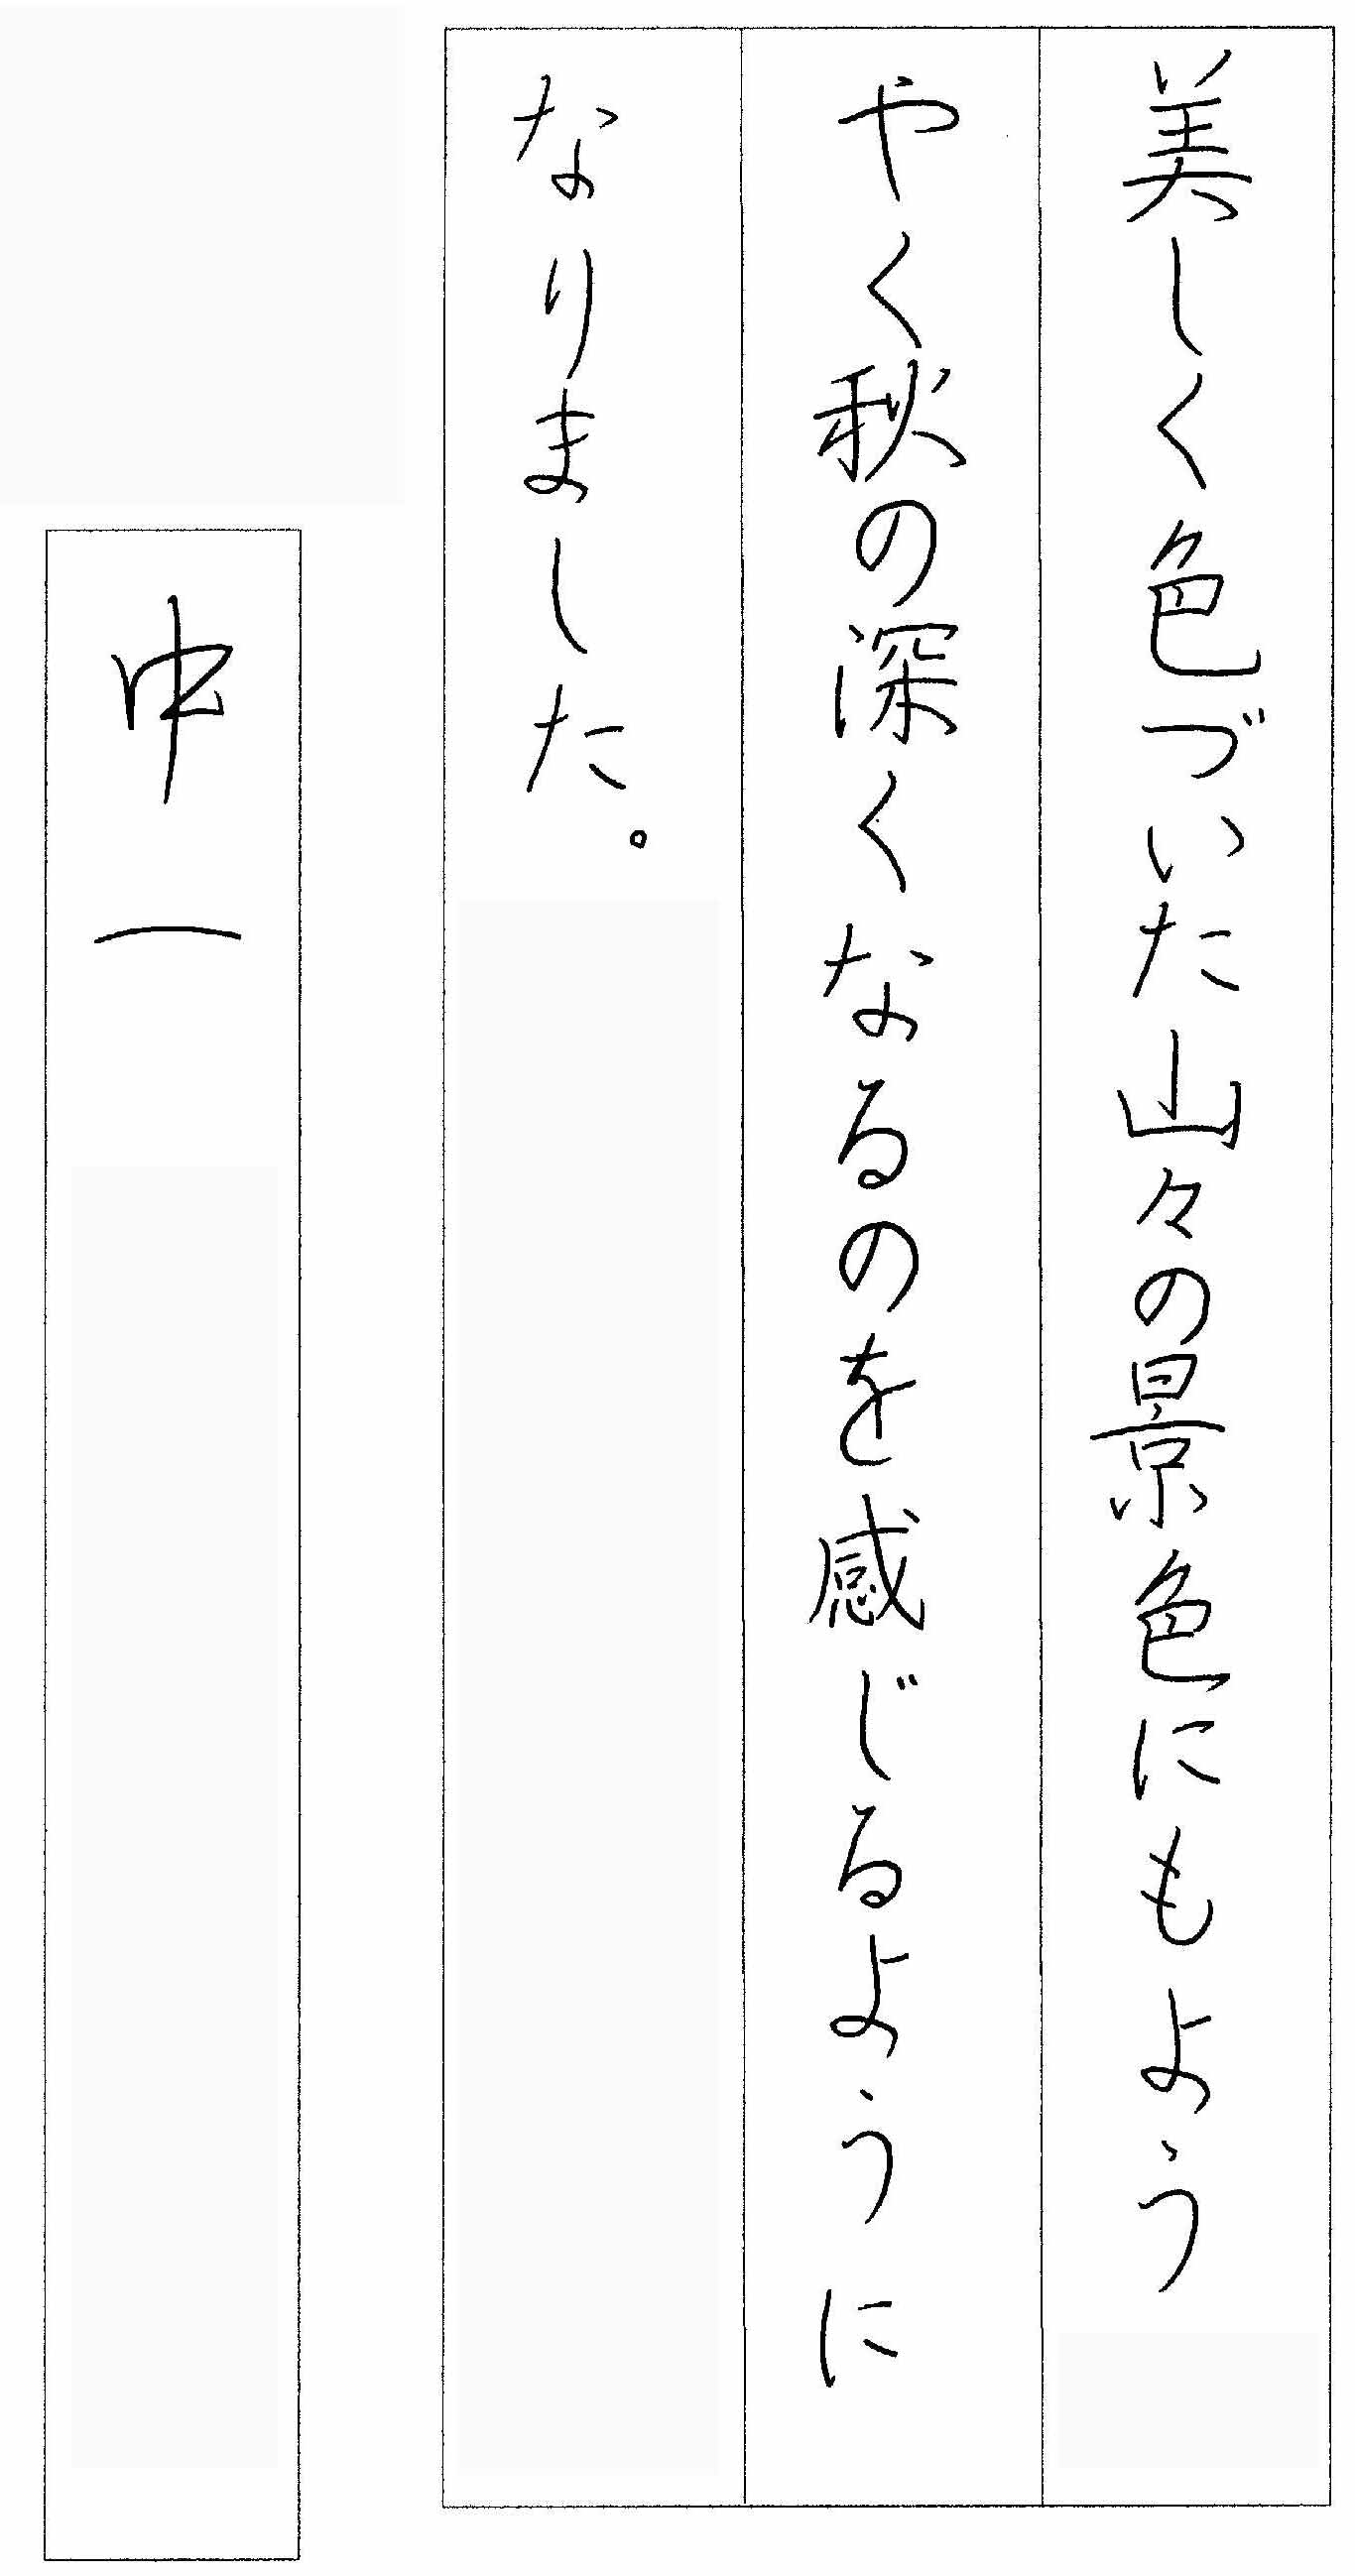 美しく色づいた山々の景色にもよう
やく秋の深くなるのを感じるように
なりました。
中一